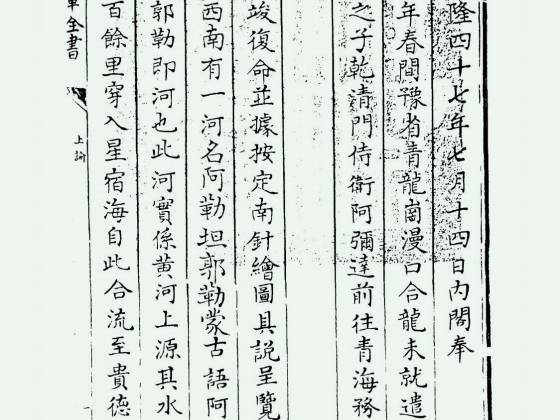 隆四十七年七月十四日内閣奉
年春間豫省青龍崗漫口合龍未就遣
之子乾清門侍衛阿彌達前往青海務
竣復命並據按定南針繪圖具說呈覽
西南有一河名阿勒坦郭勒蒙古語阿
郭勒即河也此河實係黃河上源其水
百餘里穿入星宿海自此合流至貴德
全書
上諭